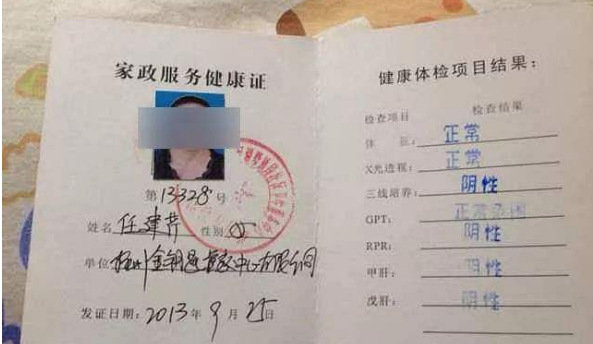 家政服务健康证
第13328号
姓名 任建芹 性别 女
单位
发证日期：2013年9月25日
健康体检项目结果：
检查项目 检查结果
体 征： 正常
X光进程： 正常
三线培养： 阴性
GPT： 正常范围
RPR： 阴性
甲肝： 阴性
戊肝： 阴性